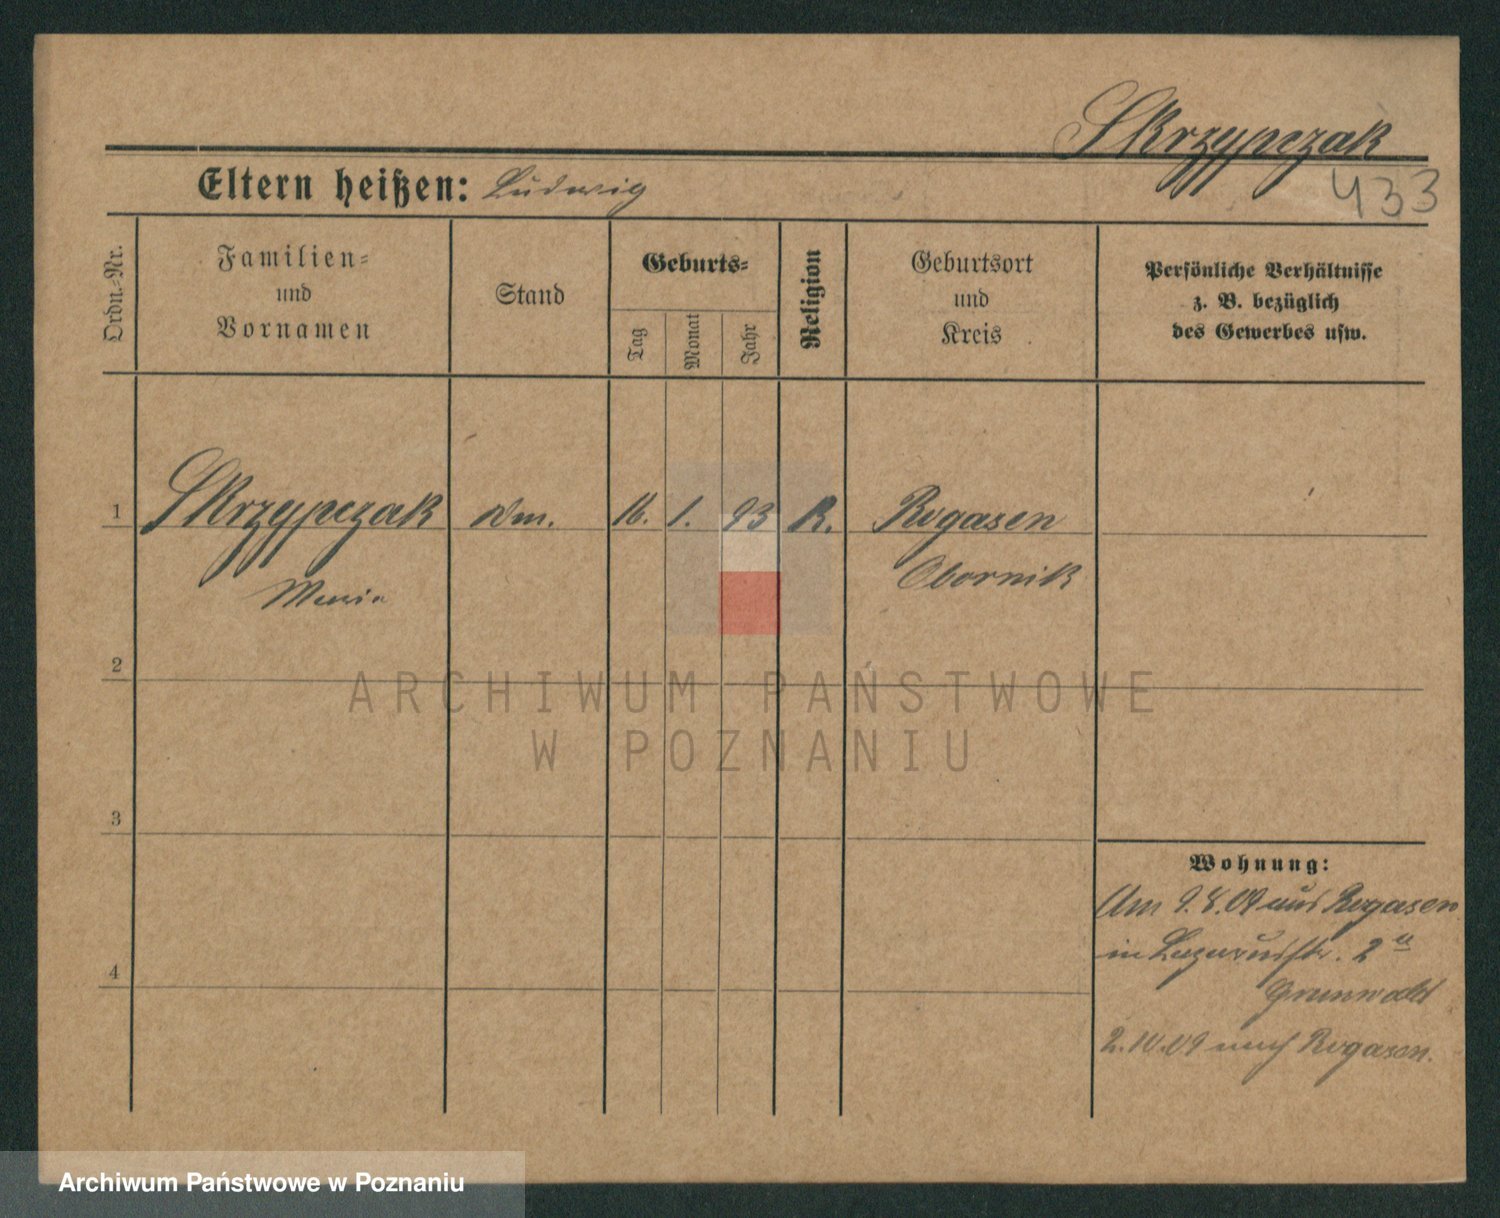 Skrzypczak
433
Eltern heißen: Ludwig
Ordn.-Nr.
Familien-
und
Vornamen
Stand
Geburts-
Tag
Monat
Jahr
Religion
Geburtsort
und
Kreis
Persönliche Verhältnisse
z. B. bezüglich
des Gewerbes usw.
1
Skrzypczak
16. 1. 93 R. Rogasen
Maria
Obornik
2
ARCHIWUM PAŃSTWOWE
W POZNANIU
3
4
Wohnung:
Am 9.8.09 aus Rogasen
in Lazarusstr. 2
Grunwald
2.10.09 nach Rogasen.
Archiwum Państwowe w Poznaniu